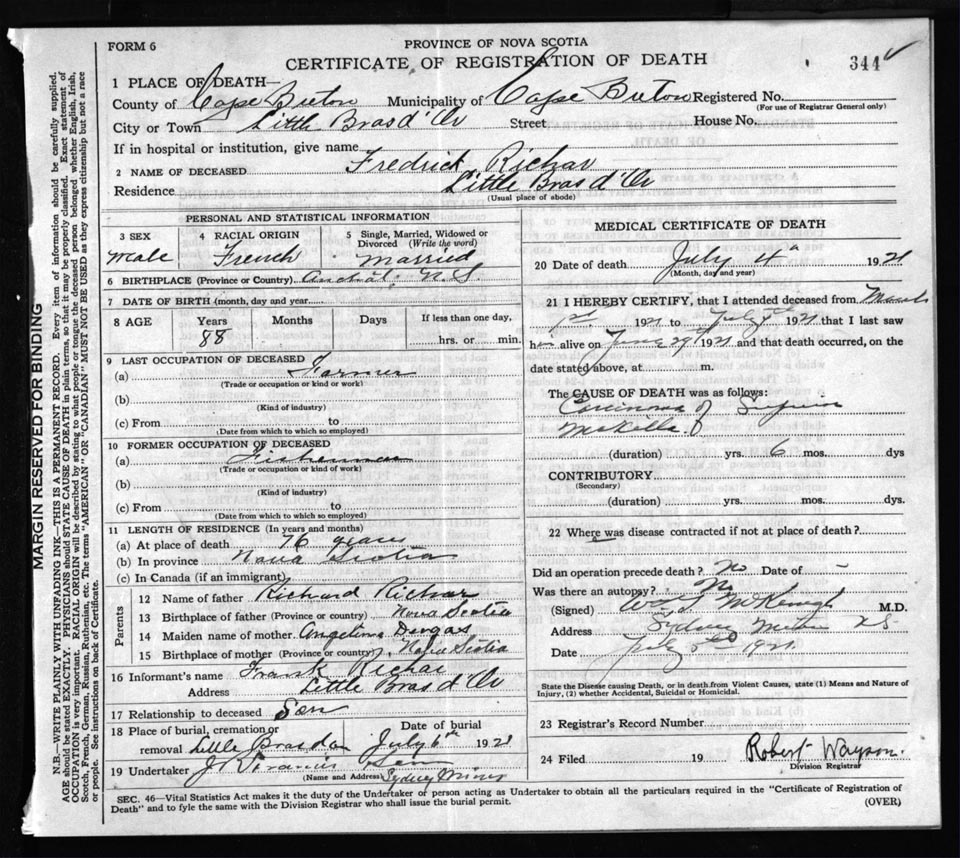 FORM 6
PROVINCE OF NOVA SCOTIA
CERTIFICATE OF REGISTRATION OF DEATH
344
1 PLACE OF DEATH—
County of Cape Breton Municipality of Cape Breton Registered No.
(For use of Registrar General only)
City or Town Little Bras d'Or Street House No.
If in hospital or institution, give name
2 NAME OF DECEASED Fredrick Richar
Residence Little Bras d'Or
(Usual place of abode)
PERSONAL AND STATISTICAL INFORMATION
3 SEX
Male
4 RACIAL ORIGIN
French
5 Single, Married, Widowed or Divorced (Write the word)
Married
6 BIRTHPLACE (Province or Country) N.S.
7 DATE OF BIRTH (month, day and year)
8 AGE Years Months Days If less than one day,
88 hrs. or min.
9 LAST OCCUPATION OF DECEASED
(a) Farmer
(Trade or occupation or kind or work)
(b)
(Kind of industry)
(c) From to
(Date from which to which so employed)
10 FORMER OCCUPATION OF DECEASED
(a) Fisherman
(Trade or occupation or kind of work)
(b)
(Kind of industry)
(c) From to
(Date from which to which so employed)
11 LENGTH OF RESIDENCE (In years and months)
(a) At place of death 76 years
(b) In province Nova Scotia
(c) In Canada (if an immigrant)
Parents
12 Name of father Richard Richar
13 Birthplace of father (Province or country) Nova Scotia
14 Maiden name of mother Angelina
15 Birthplace of mother (Province or country) Nova Scotia
16 Informant's name Frank Richar
Address Little Bras d'Or
17 Relationship to deceased Son
18 Place of burial, cremation or removal Little Bras d'or
Date of burial
July 6th 1921
19 Undertaker J. Francis
(Name and Address) Sydney Mines
MEDICAL CERTIFICATE OF DEATH
20 Date of death July 4th 1921
(Month, day and year)
21 I HEREBY CERTIFY, that I attended deceased from March
1st 1921 to July 4th 1921 that I last saw
him alive on June 29th 1921 and that death occurred, on the
date stated above, at m.
The CAUSE OF DEATH was as follows:
Carcinoma of Superior
Maxilla
(duration) yrs. 6 mos. dys
CONTRIBUTORY
(Secondary)
(duration) yrs. mos. dys.
22 Where was disease contracted if not at place of death?
Did an operation precede death? No Date of -
Was there an autopsy? No
(Signed) M.D.
Address Sydney Mines N.S.
Date July 5th 1921
State the Disease causing Death, or in death from Violent Causes, state (1) Means and Nature of
Injury, (2) whether Accidental, Suicidal or Homicidal.
23 Registrar's Record Number
24 Filed 19 Robert Wayson.
Division Registrar
SEC. 46—Vital Statistics Act makes it the duty of the Undertaker or person acting as Undertaker to obtain all the particulars required in the "Certificate of Registration of
Death" and to fyle the same with the Division Registrar who shall issue the burial permit. (OVER)
MARGIN RESERVED FOR BINDING
N.B.—WRITE PLAINLY WITH UNFADING INK—THIS IS A PERMANENT RECORD. Every item of information should be carefully supplied.
AGE should be stated EXACTLY. PHYSICIANS should STATE CAUSE OF DEATH in plain terms, so that it may be properly classified. Exact statement of
OCCUPATION is very important. RACIAL ORIGIN will be described by stating to what people or tongue the deceased person belonged whether English, Irish,
Scotch, French, German, Russian, Ruthenian, etc. The terms "AMERICAN" OR "CANADIAN" MUST NOT BE USED as they express citizenship but not a race
or people. See instructions on back of Certificate.